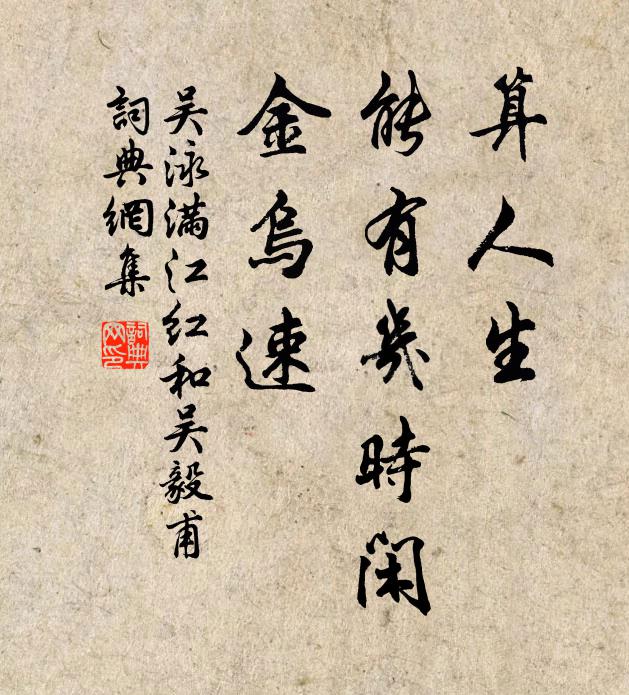 算人生
能有幾時閑
金烏速
吴泳满江红和吴毅甫
詞典網集
詞典
网印